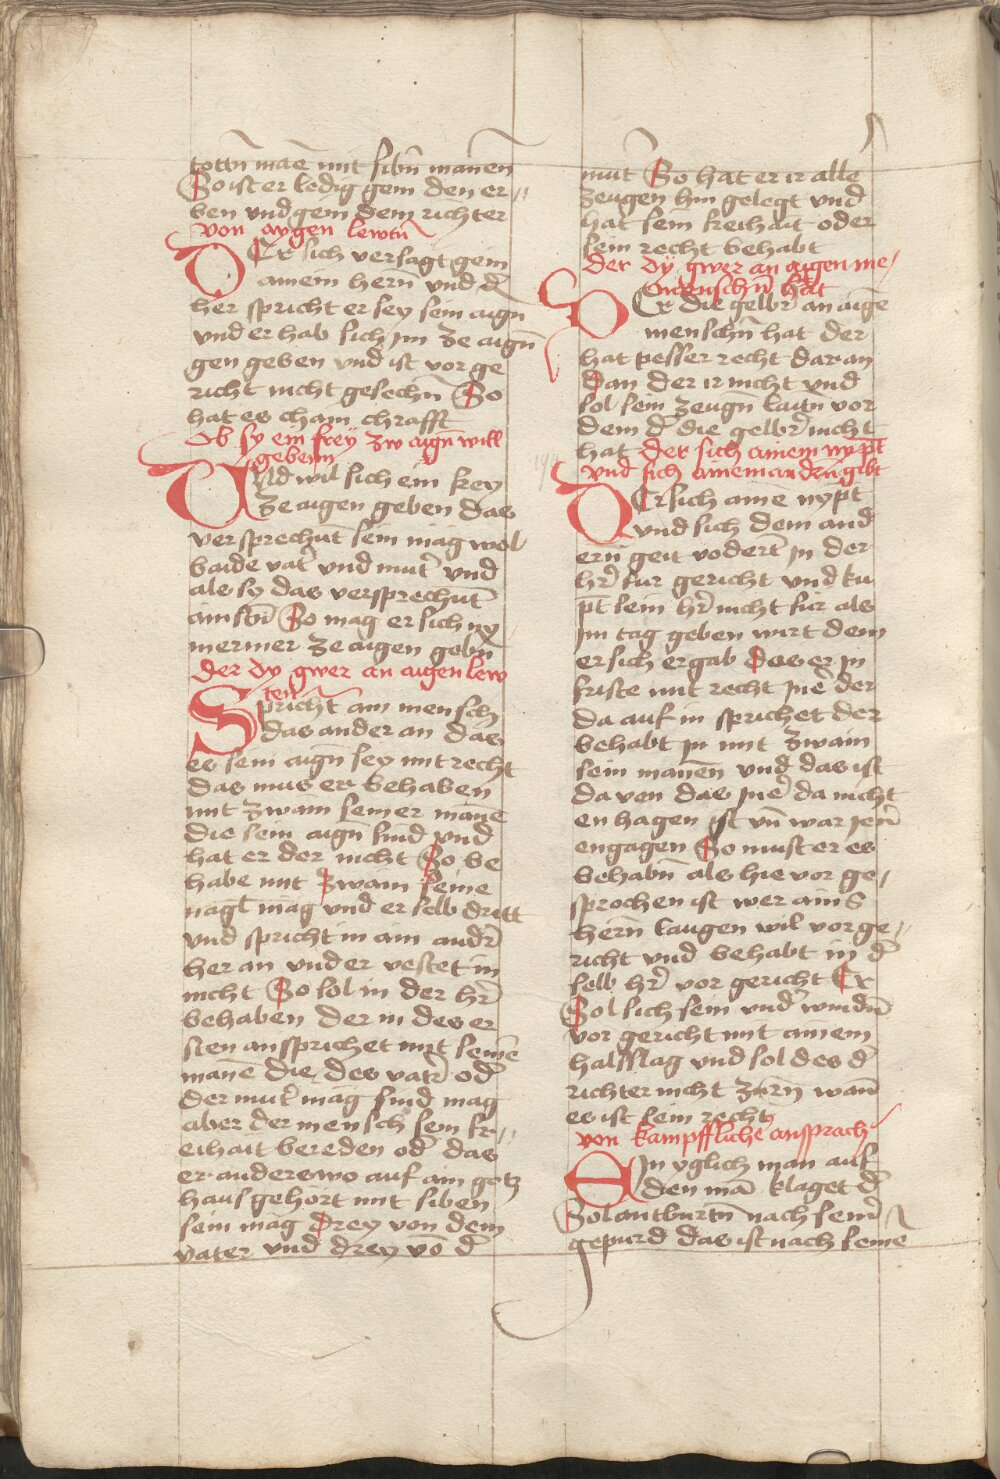 tottn̄ māe mit sibn̄ manen̄
So ist er ledig gein den er„
ben vnd gein dem richter
von aygen lewtn̄
DEr sich versagt gein
ainem hern̄ vnd d̄
her spricht er sey sein aign
vnd er hab sich jm ze aign̄
gen geben vnd ist vor ge
richt nicht geschechn̄ So
hat es chain chrafft
Ob sy ein frey zw aign̄ will
gebenn
VNd wil sich ein frey
ze aigen geben das
versprechnt̄ sein mag wol
baide vat̄ vnd mut̄ vnd
als sy das versprechnt̄
ainstn̄ So mag er sich ny
mermer ze aigen gebn̄
der dy gwer an aigen lew
ten
Spricht ain mensch
das ander an das
es sein aign̄ sey mit recht
das mus er behaben
mit zwain seiner manē
die sein aign̄ sind vnd
hat er der nicht So be
habe mit zwain seine
nagt̄ mag vnd er selb dritt
vnd spricht in ain andr̄
her an vnd er vestet in
nicht So sol in der hr̄
behaben der in des er
sten ansprichet mit seinē
manē die des vatr̄ od̄
der mut̄ mag sind mag
aber der mensch sein fr„
eihait bereden od̄ das
er anderswo auf ain gotz
haus gehört mit siben
sein mag Drey von dem
vater vnd drey vō d̄
mut̄ So hat er ir alle
zeugen hin gelegt vnd
hat sein freihait oder
sein recht behabt
der dy gwer an aigen me/
menschn̄ hat
DEr die gelbr̄ an aigē
menschn̄ hat der
hat pesser recht daran
Dan der ir nicht vnd
sol sein zeugn̄ laitn̄ vor
dem d̄ die gelbr̄ nicht
hat der sich ainem nypt̄
vnd sich aineman dern̄ gibt
DEr sich ainē nypt̄
vnd sich dem and̄
ern̄ geit vodert̄ jn der
hr̄ fur gericht vnd ku
pt̄ sein hr̄ nicht für als
jm tag geben wirt dem
er sich ergab Das er jn
friste mit recht jnē der
da auf in sprichet der
behabt jn mit zwain
sein manen̄ vnd das ist
da von das jnē da nicht
en hagen ist vn̄ war jen̄
engagen So must er es
behabn̄ als hie vor ge„
sprochen ist wer ains
hern̄ laugen wil vor ge„
richt vnd behabt in d̄
selb hr̄ vor gericht Er
Sol sich sein vnd̄ windn̄
vor gericht mit ainem
halsslag vnd sol des d̄
richter nicht zürn̄ wan̄
es ist sein recht
von kampffliche ansprach
EJn yglich man auf
den mā klaget d̄
Sol antburtn̄ nach sein̄
gepurd das ist nach seine